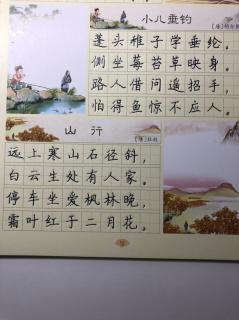 小儿垂钓
[唐]胡令能
蓬头稚子学垂纶，
侧坐莓苔草映身。
路人借问遥招手，
怕得鱼惊不应人。
山行
[唐]杜牧
远上寒山石径斜，
白云生处有人家。
停车坐爱枫林晚，
霜叶红于二月花。